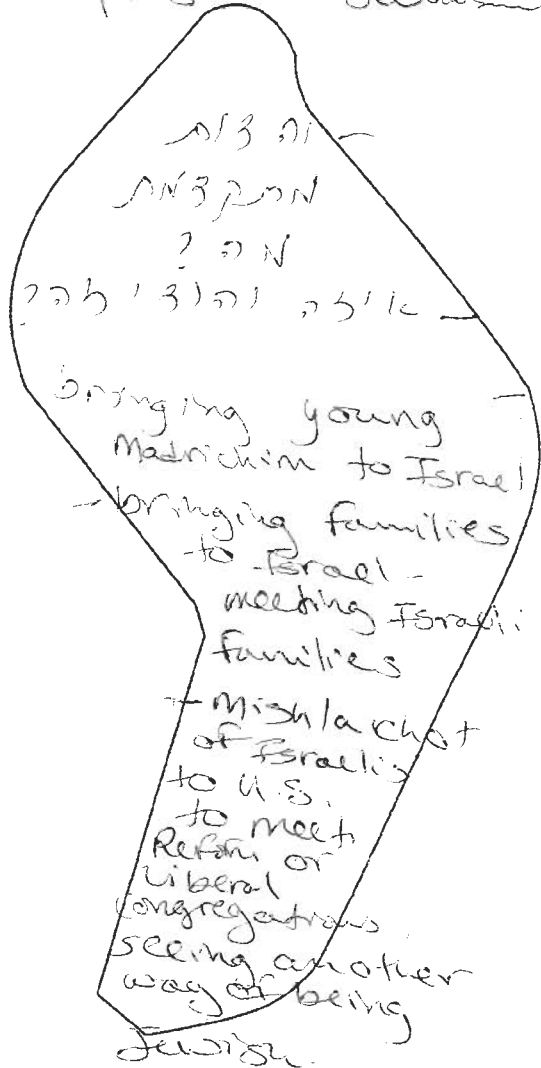 - יהדות
מתקדמת
מה ?
- איזה יהודי אתה?
- bringing young
Madrichim to Israel
- bringing families
to Israel -
meeting Israeli
families
- Mishlachot
of Israelis
to U.S.
to meet
Reform or
Liberal
Congregations
seeing another
way of being
Jewish.